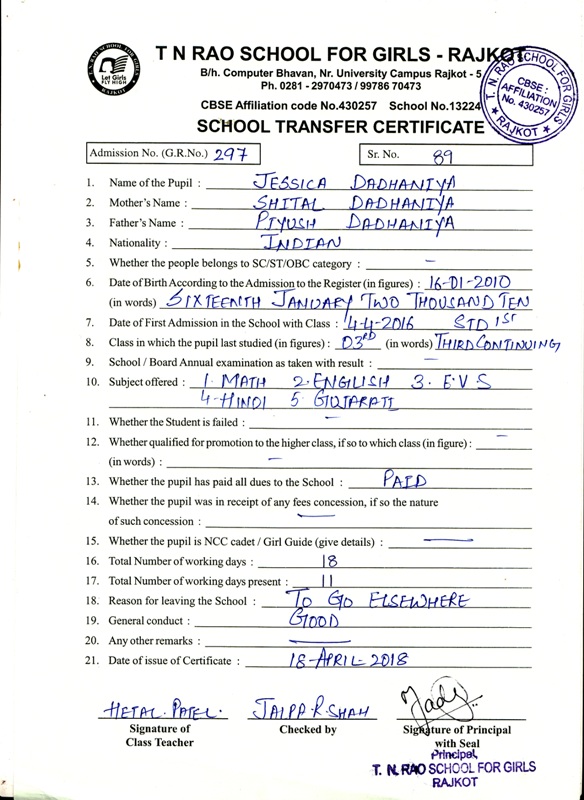 T N RAO SCHOOL FOR GIRLS
Let Girls
FLY HIGH
RAJKOT
T N RAO SCHOOL FOR GIRLS - RAJKOT
B/h. Computer Bhavan, Nr. University Campus Rajkot - 5
Ph. 0281 - 2970473 / 99786 70473
CBSE Affiliation code No.430257 School No.13224
T. N. RAO SCHOOL FOR GIRLS
CBSE:
AFFILIATION
No. 430257
★ RAJKOT ★
SCHOOL TRANSFER CERTIFICATE
Admission No. (G.R.No.) 297 Sr. No. 89
1. Name of the Pupil : JESSICA DADHANIYA
2. Mother's Name : SHITAL DADHANIYA
3. Father's Name : PIYUSH DADHANIYA
4. Nationality : INDIAN
5. Whether the people belongs to SC/ST/OBC category : —
6. Date of Birth According to the Admission to the Register (in figures) : 16-01-2010
(in words) SIXTEENTH JANUARY TWO THOUSAND TEN
7. Date of First Admission in the School with Class : 4-4-2016 STD 1ST
8. Class in which the pupil last studied (in figures) : 03RD (in words) THIRD CONTINUING
9. School / Board Annual examination as taken with result : —
10. Subject offered : 1. MATH 2. ENGLISH 3. E.V.S
4. HINDI 5. GUJARATI
11. Whether the Student is failed : —
12. Whether qualified for promotion to the higher class, if so to which class (in figure) : —
(in words) : —
13. Whether the pupil has paid all dues to the School : PAID
14. Whether the pupil was in receipt of any fees concession, if so the nature
of such concession : —
15. Whether the pupil is NCC cadet / Girl Guide (give details) : —
16. Total Number of working days : 18
17. Total Number of working days present : 11
18. Reason for leaving the School : TO GO ELSEWHERE
19. General conduct : GOOD
20. Any other remarks : —
21. Date of issue of Certificate : 18-APRIL-2018
HETAL. PATEL. JALPA.R.SHAH
Signature of Checked by Signature of Principal
Class Teacher with Seal
Principal,
T. N. RAO SCHOOL FOR GIRLS
RAJKOT